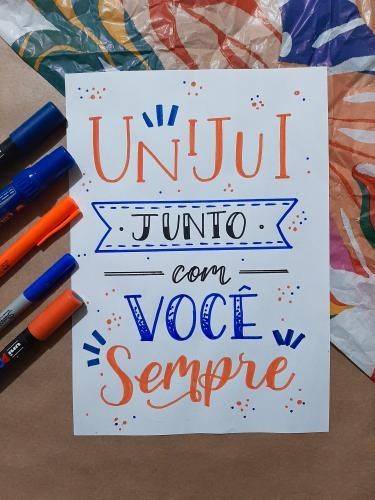 UNIJUI
· JUNTO ·
com
VOCÊ
Sempre